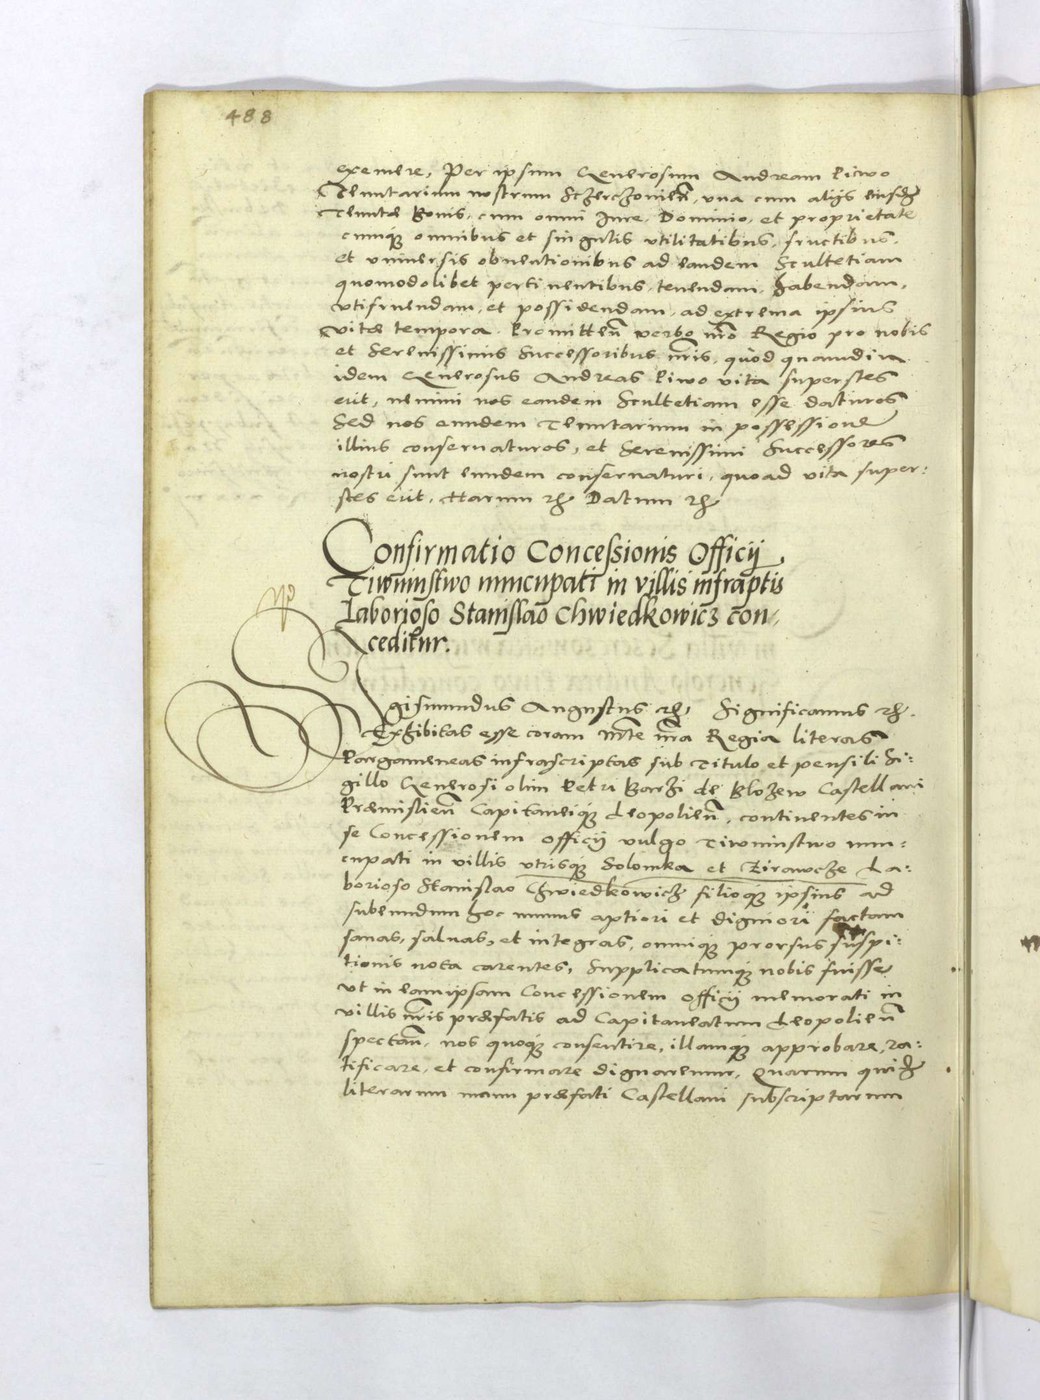 488
exemere, Per ipsum Generosum Andream Liwo
Tenutarium nostrum Sczerczovien̄, una cum alijs eiusdē
Tenutæ bonis, cum omni Jure, Dominio, et proprietate
cumq́ꝫ omnibus et singulis utilitatibus, fructibus,
et universis obventionibus ad eandem Scultetiam
quomodolibet pertinentibus, tenendam, habendam,
utifruendam, et possidendam, ad extrema ipsius
vitæ tempora. Promitten̄ verbo nr̄o Regio pro nobis
et Serenissimis Successoribus nr̄is, quod quamdiu
idem Generosus Andreas Liwo vita superstes
erit, nemini nos eandem Scultetiam esse daturos
Sed nos eundem Tenutarium in possessione
illius conservaturos, et Serenissimi Successores
nostri sunt eundem conservaturi, quoad vita super:
stes erit. Harum ꝛc̄ Datum ꝛc̄
Confirmatio Concessionis Officij
Tiwunstwo nuncupati in villis infrap̄tis
Laborioso Stanislao Chwiedkowicz con,
ceditur.
Sigismundus Augustus ꝛc̄ Significamus ꝛc̄.
Exhibitas esse coram Mt̄e nr̄a Regia literas
Pargameneas infrascriptas sub Titulo et pensili Si:
gillo Generosi olim Petri Barzi de Blozew Castellani
Præmislien̄ Capitaneiq́ꝫ Leopolien̄, continentes in
se Concessionem officij vulgo Tiwunstwo nun:
cupati in villis utrisq́ꝫ Solonka et Zirawcze La:
borioso Stanislao Chwiedkowicz filioq́ꝫ ipsius ad
subeundum hoc munus aptiori et digniori factam
sanas, salvas, et integras, omniq́ꝫ prorsus suspi:
tionis nota carentes, Supplicatumq́ꝫ nobis fuisse
ut in eam ipsam Concessionem officij memorati in
villis nr̄is præfatis ad Capitaneatum Leopolien̄
spectan̄, nos quoq́ꝫ consentire, illamq́ꝫ approbare, ra:
tificare, et confirmare dignaremur, Quarum quidē
literarum manu præfati Castellani subscriptarum